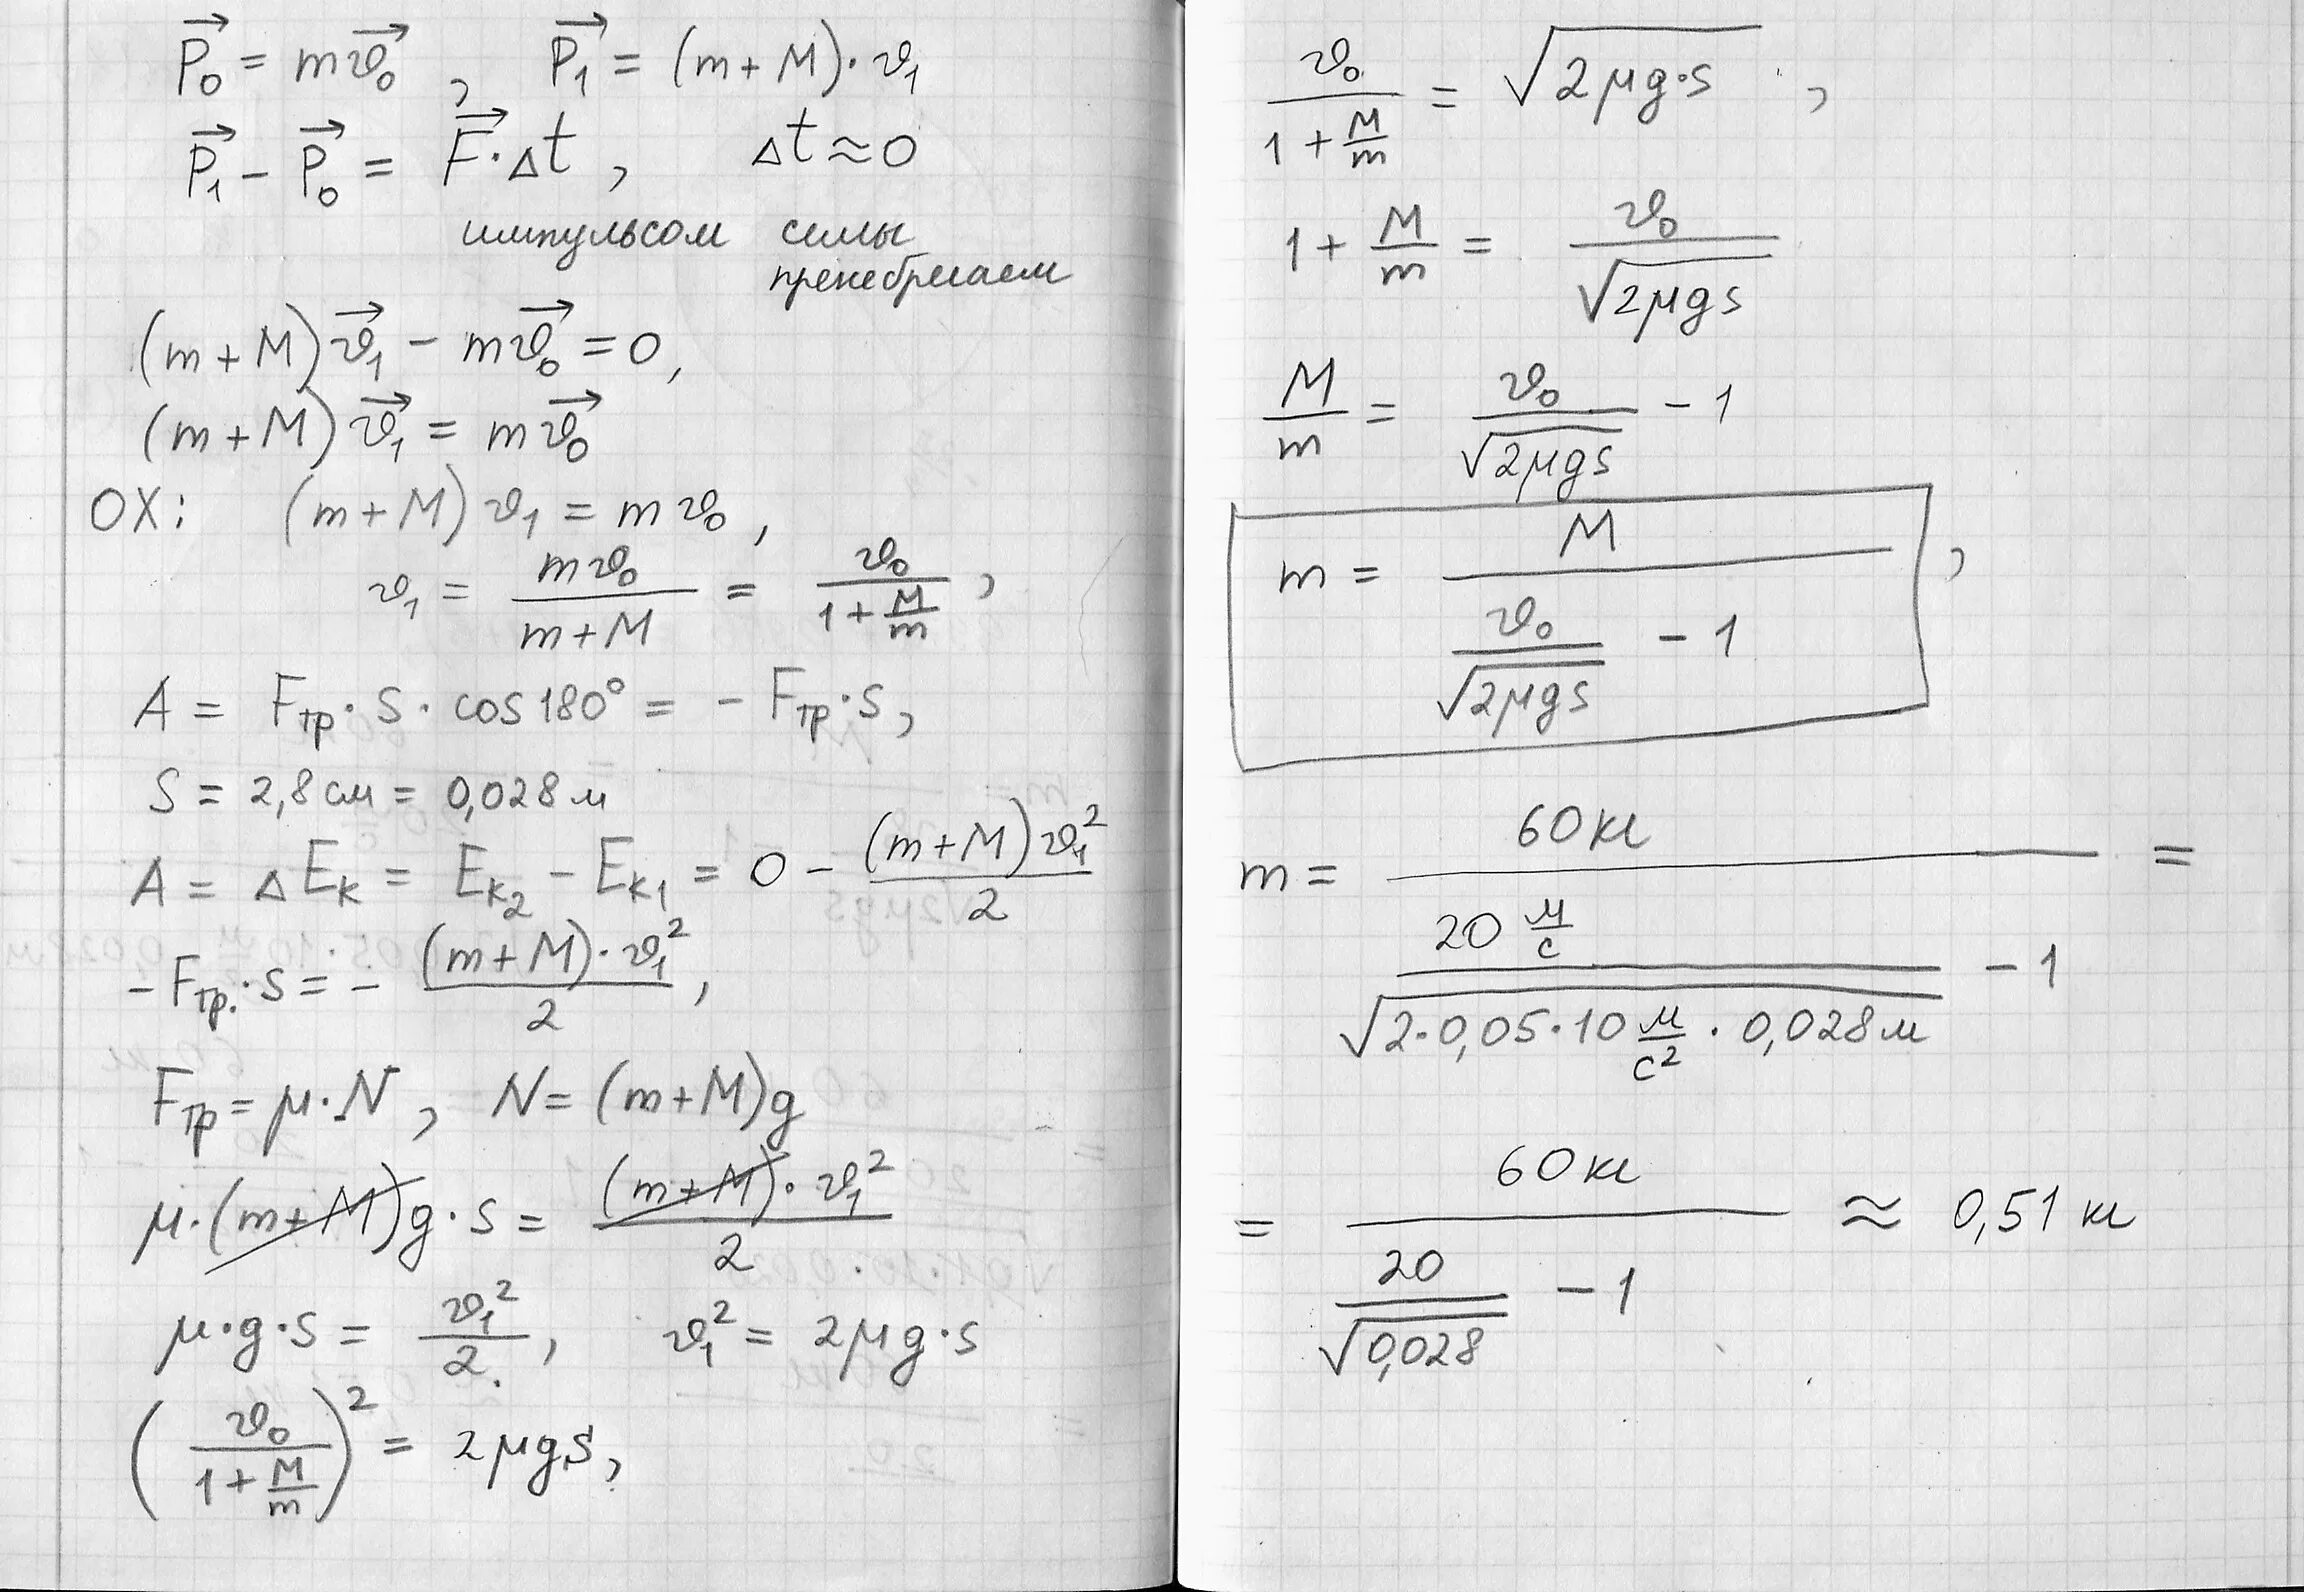 P₀ = mv₀ , P₁ = (m + M) · v₁
P₁ − P₀ = F · Δt , Δt ≈ 0
импульсом силы
пренебрегаем
(m + M) v₁ − mv₀ = 0,
(m + M) v₁ = mv₀
OX: (m + M) v₁ = m v₀ ,
v₁ = mv₀ / (m + M) = v₀ / (1 + M/m) ,
A = Fтр · S · cos 180° = − Fтр · S ,
S = 2,8 см = 0,028 м
A = ΔEк = Eк₂ − Eк₁ = 0 − (m + M) v₁² / 2
− Fтр. · S = − (m + M) · v₁² / 2 ,
Fтр = μ · N , N = (m + M)g
μ · (m + M)g · S = (m + M) · v₁² / 2
μ · g · S = v₁² / 2 , v₁² = 2μg · S
(v₀ / (1 + M/m))² = 2μgS,
v₀ / (1 + M/m) = √(2μg · S) ,
1 + M/m = v₀ / √(2μgS)
M/m = v₀ / √(2μgS) − 1
m = M / (v₀ / √(2μgS) − 1) ,
m = 60 кг / (20 м/с / √(2 · 0,05 · 10 м/с² · 0,028 м) − 1) =
= 60 кг / (20 / √0,028 − 1) ≈ 0,51 кг